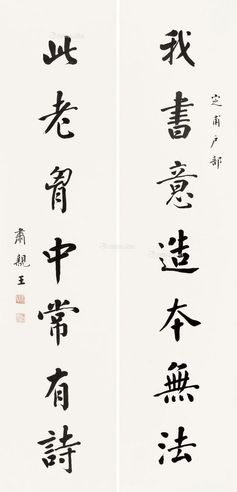 定甫户部
我書意造本無法
此老胷中常有詩
肅親王